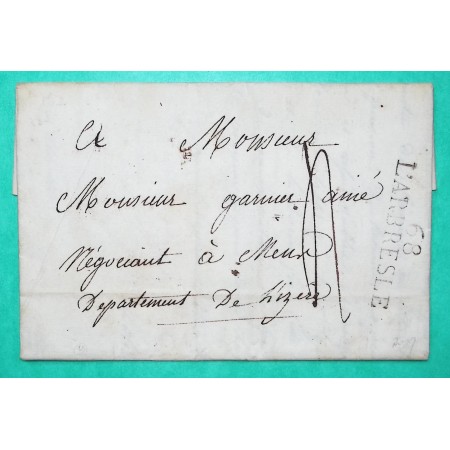 A Monsieur
Monsieur garnier ainé
Négociant à Mens
Departement De L'izère
68
L'ARBRESLE